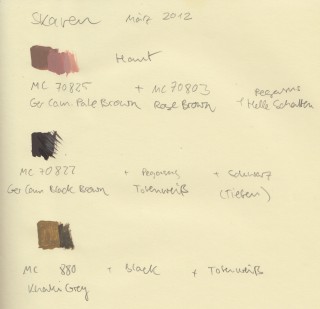 Skaven März 2012
Haut
MC 70825 + MC 70803 +
Ger Cam. Pale Brown Rose Brown Helle Schatten
MC 70822 + + Schwarz
Ger Cam Black Brown Totenweiß (Tiefen)
MC 880 + Black + Totenweiß
Khaki Grey